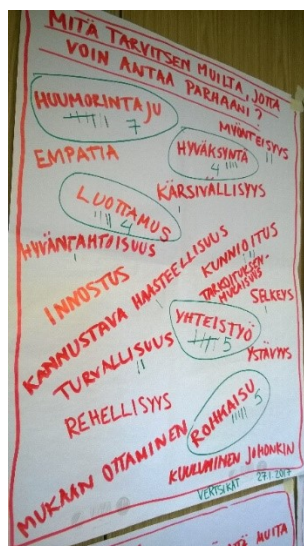 MITÄ TARVITSEN MUILTA, JOTTA
VOIN ANTAA PARHAANI?
HUUMORINTAJU
7
MYÖNTEISYYS
EMPATIA
HYVÄKSYNTÄ
4
KÄRSIVÄLLISYYS
LUOTTAMUS
4
HYVÄNTAHTOISUUS
INNOSTUS
KANNUSTAVA HAASTEELLISUUS
KUNNIOITUS
TARKOITUKSEN-
MUKAISUUS
SELKEYS
TURVALLISUUS
YHTEISTYÖ
5
YSTÄVYYS
REHELLISYYS
ROHKAISU
5
MUKAAN OTTAMINEN
KUULUMINEN JOHONKIN
VERTSIKAT 27.1.2017
MUITA